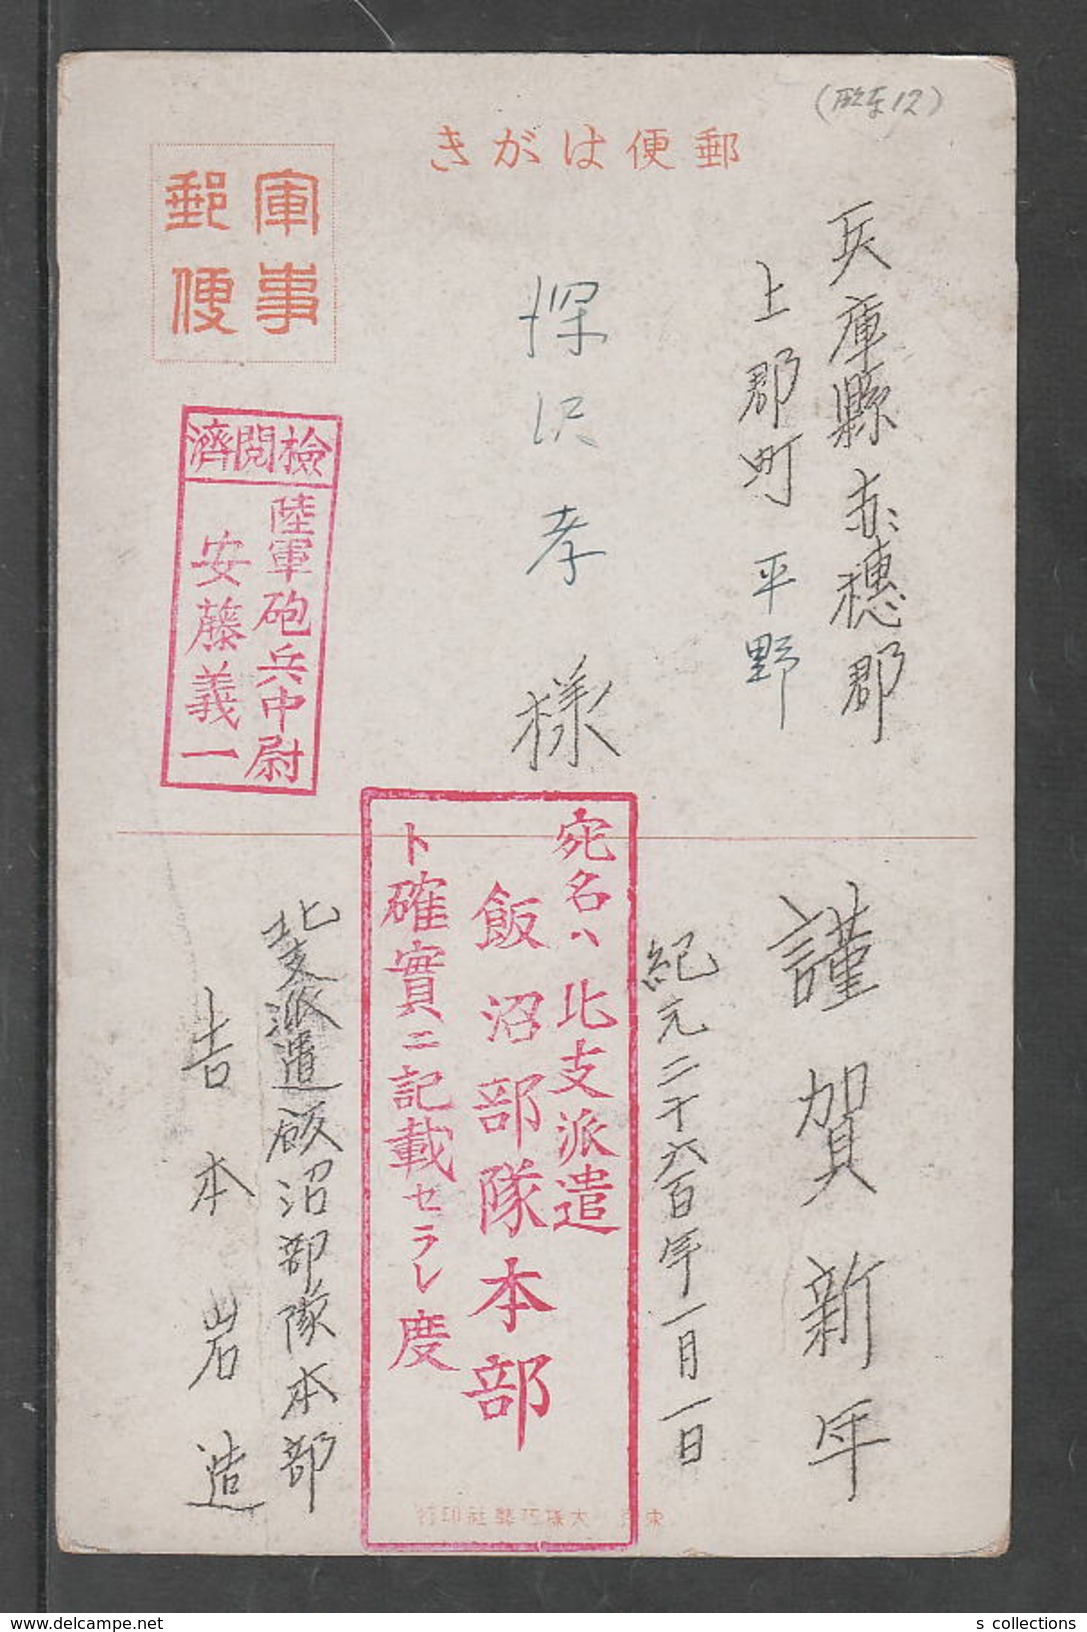 郵便はがき
軍事郵便
兵庫縣赤穂郡
上郡町 平野
深沢孝様
検閲濟
陸軍砲兵中尉
安藤義一
謹賀新年
紀元二千六百年一月一日
宛名ハ北支派遣
飯沼部隊本部
ト確實ニ記載セラレ度
北支派遣飯沼部隊本部
吉本岩造
s collections